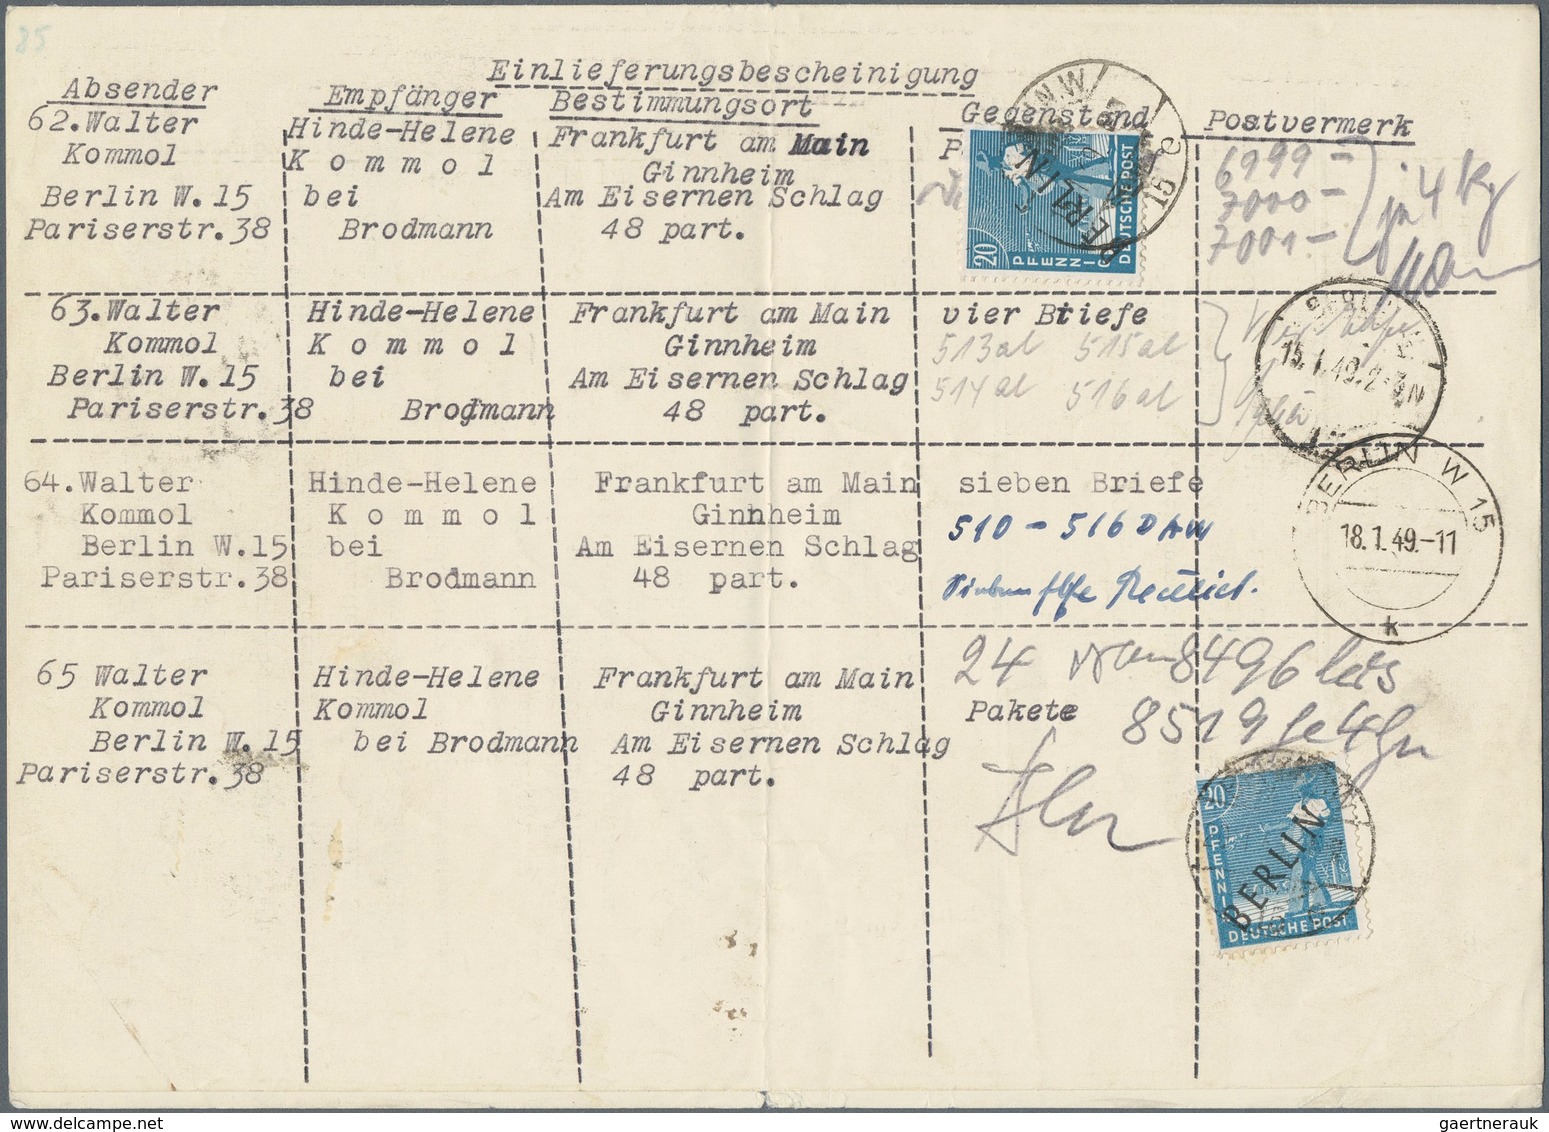 85
Einlieferungsbescheinigung
Absender Empfänger Bestimmungsort Gegenstand Postvermerk
62.Walter Hinde-Helene Frankfurt am Main P 6999-
Kommol K o m m o l Ginnheim 7000- je 4 kg
Berlin W.15 bei Am Eisernen Schlag 7001-
Pariserstr.38 Brodmann 48 part.
BERLIN W 15 e
BERLIN
20 PFENNIG
DEUTSCHE POST
63.Walter Hinde-Helene Frankfurt am Main vier Briefe
Kommol K o m m o l Ginnheim 513al 515al
Berlin W.15 bei Am Eisernen Schlag 514al 516al
Pariserstr.38 Brodmann 48 part.
15.1.49.
64.Walter Hinde-Helene Frankfurt am Main sieben Briefe
Kommol K o m m o l Ginnheim 510-516
Berlin W.15 bei Am Eisernen Schlag
Pariserstr.38 Brodmann 48 part.
BERLIN W 15
18.1.49.-11
k
65 Walter Hinde-Helene Frankfurt am Main 24 8496 bis
Kommol Kommol Ginnheim Pakete 8519
Berlin W.15 bei Brodmann Am Eisernen Schlag
Pariserstr.38 48 part.
20 PFENNIG
BERLIN
DEUTSCHE POST
gaertnerauk